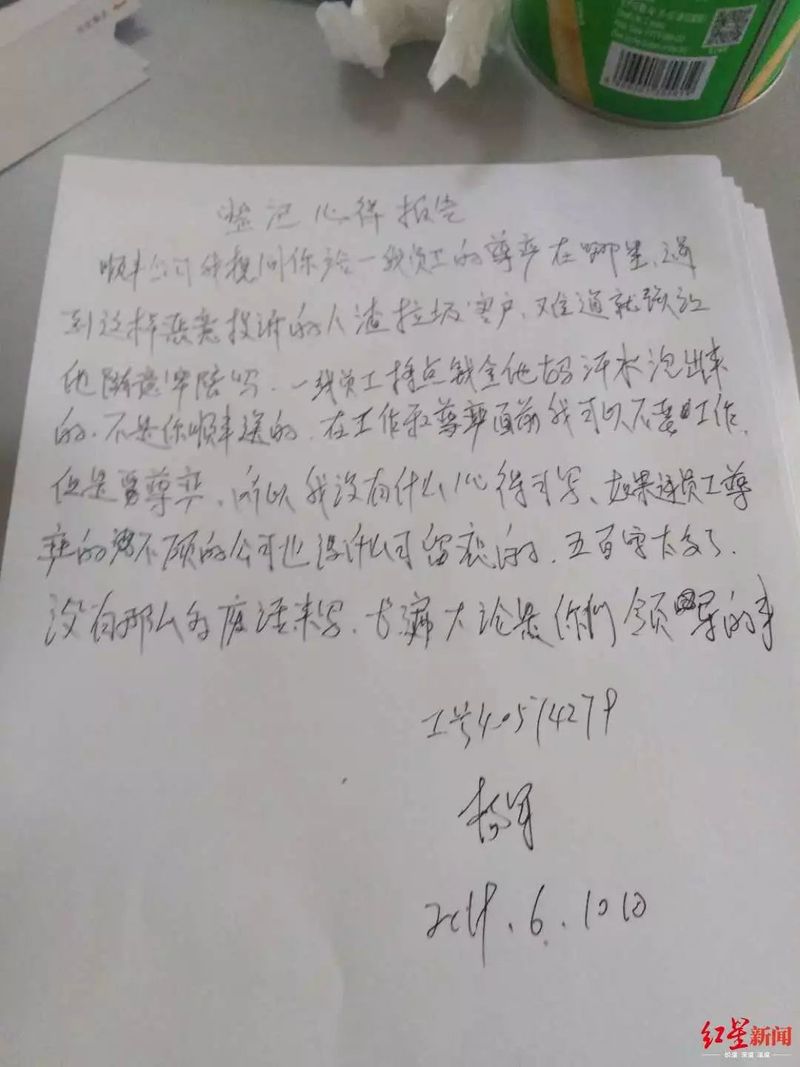 登记心得报告
顺丰公司我想问你给一线员工的尊严在哪里、遇
到这样恶意投诉的人渣垃圾客户、难道就该让
他随意牢陪吗、一线员工挣点钱全他妈汗水泡出来
的、不是你顺丰送的、在工作和尊严面前我可以不要工作、
但是要尊严、所以我没有什么心得可写、如果连员工尊
严的都不顾的公司也没什么可留恋的、五百字太多了、
没有那么多废话来写、长篇大论是你们领导的事
工号40574279
杨军
6.10日
红星新闻